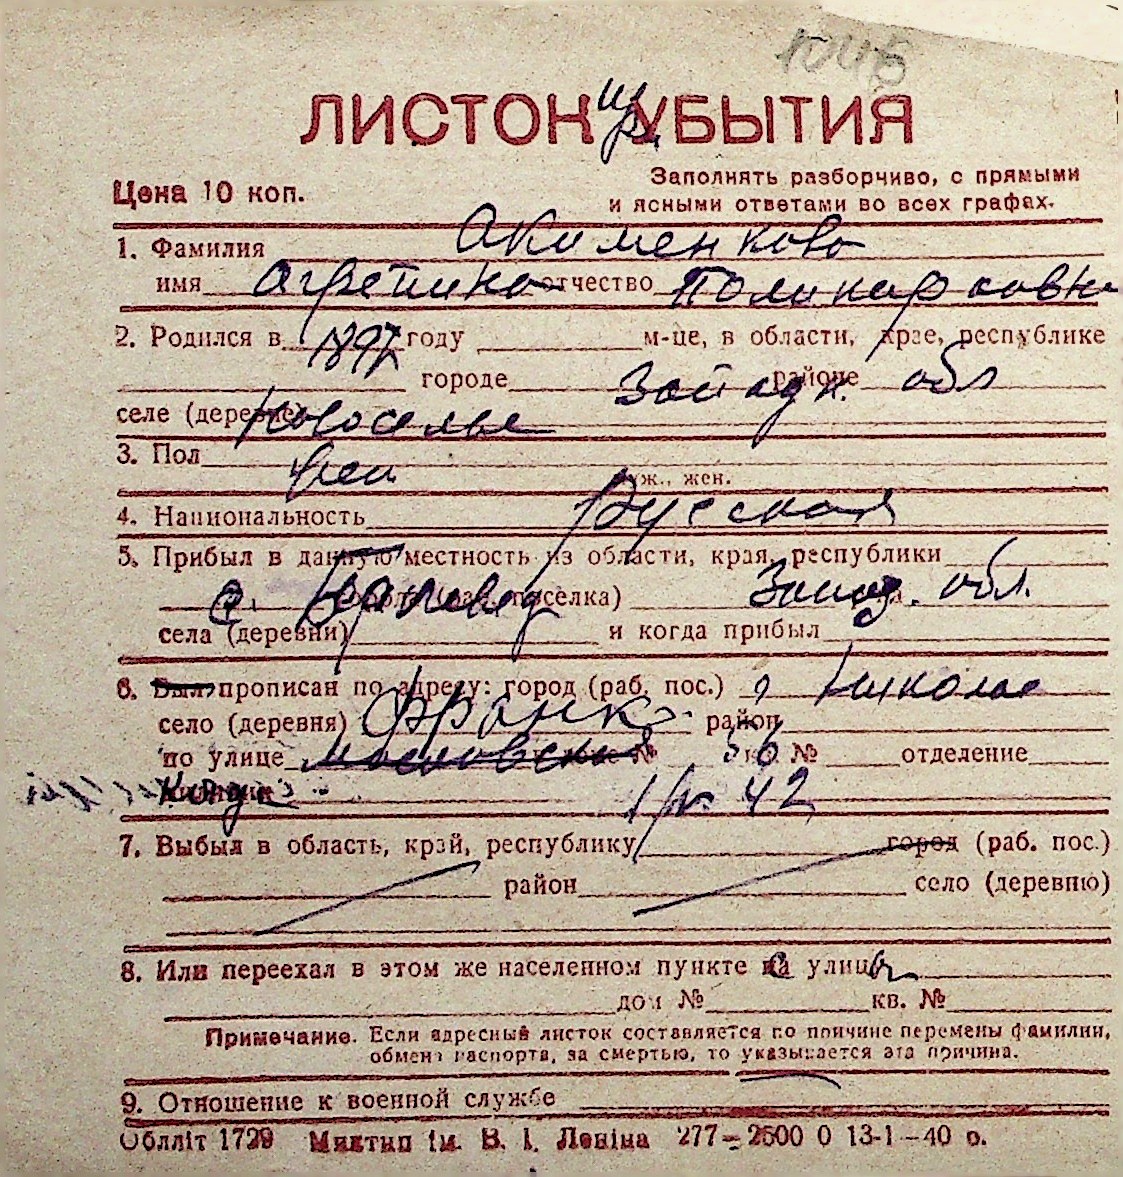 ЛИСТОК при УБЫТИЯ
Цена 10 коп.
Заполнять разборчиво, с прямыми
и ясными ответами во всех графах.
1. Фамилия Акименкова
имя Агрепина отчество Поликарповна
2. Родился в 1897 году м-це, в области, крае, республике
городе районе Западн. обл
селе (деревне) Новоселье
3. Пол жен муж., жен.
4. Национальность Русская
5. Прибыл в данную местность из области, края, республики
с. города (раб. поселка) Запад. обл.
села (деревни) и когда прибыл
6. Был прописан по адресу: город (раб. пос.) г Николае
село (деревня) Франко район
по улице Московская № 36 кв. № отделение
42
7. Выбыл в область, край, республику город (раб. пос.)
район село (деревню)
8. Или переехал в этом же населенном пункте с улицы
дом № кв. №
Примечание. Если адресный листок составляется по причине перемены фамилии,
обмена паспорта, за смертью, то указывается эта причина.
9. Отношение к военной службе
Облліт 1729 Миктип ім. В. І. Леніна 277–2500 0 13-1–40 р.